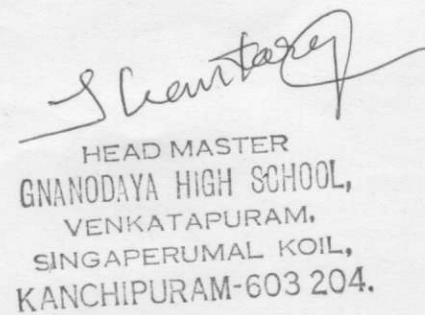 HEAD MASTER
GNANODAYA HIGH SCHOOL,
VENKATAPURAM,
SINGAPERUMAL KOIL,
KANCHIPURAM-603 204.